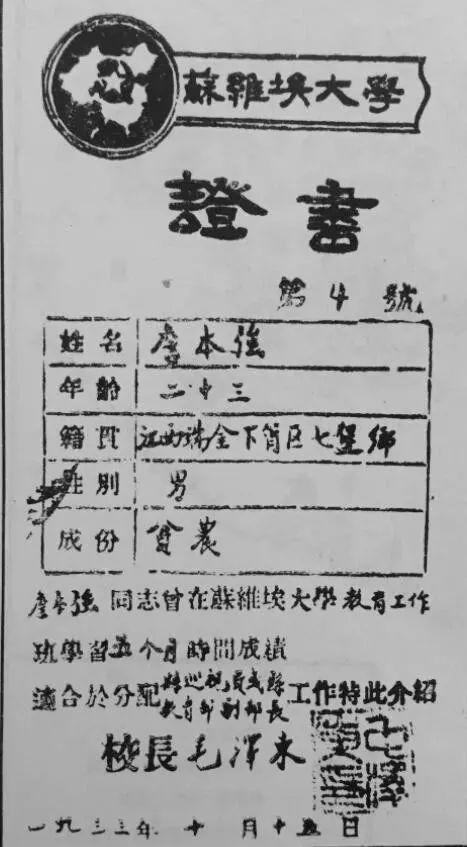 蘇維埃大學
證書
第 4 號
姓名 本強
年齡 二十三
籍貫 江西瑞金下肖区七堡鄉
性別 男
成份 農
本強 同志曾在蘇維埃大學教育工作
班學習五个月時間成績
適合於分配縣巡視員或縣教育部副部長工作特此介紹
校長毛澤東
一九三三年 十 月十五日